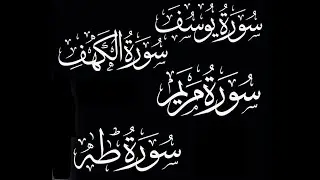 سُورَةُ يُوسُف
سُورَةُ الكَهْفِ
سُورَةُ مَريَم
سُورَةُ طه